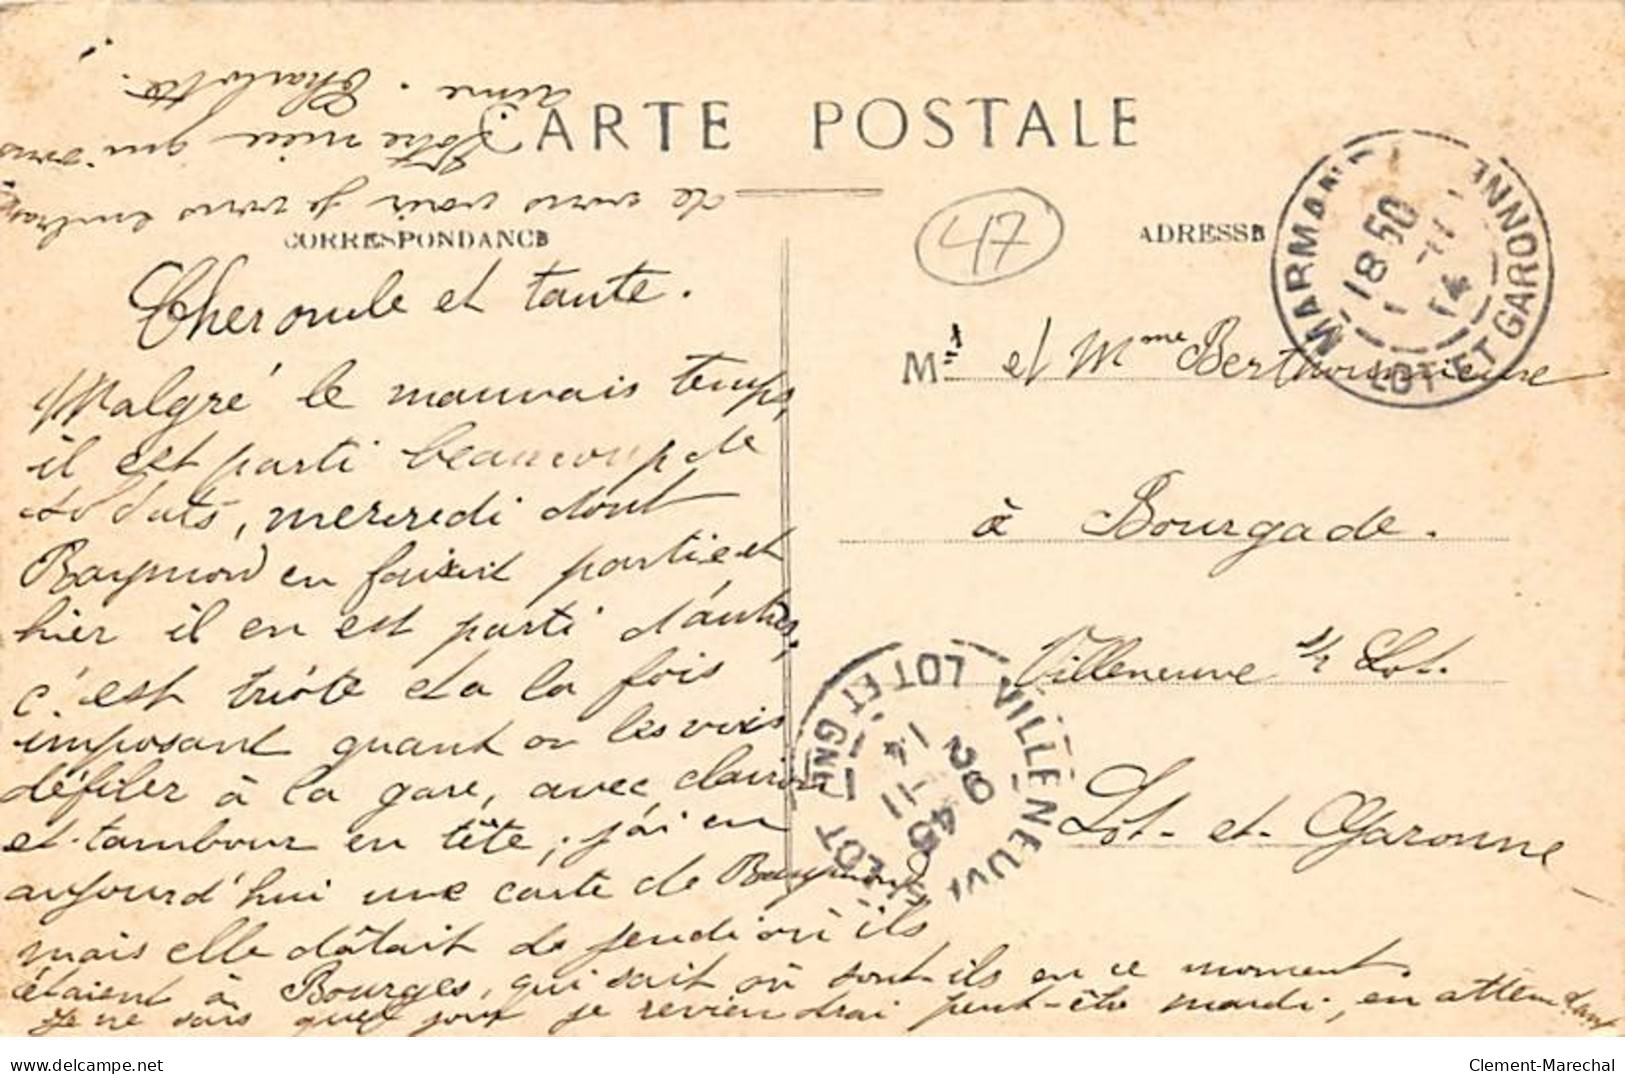 CARTE POSTALE
CORRESPONDANCE
ADRESSE
47
MARMANDE
18 50
1 -11
14
LOT ET GARONNE
Cher oncle et tante.
Malgré le mauvais temps,
il est parti beaucoup de
soldats, mercredi dont
Raymond en faisait partie et
hier il en est parti d'autres,
c'est triste et a la fois
imposant quant on les vois
défiler à la gare, avec clairon
et tambour en tête, j'ai eu
aujourd'hui une carte de Raymond
mais elle dâtait de jeudi où ils
étaient à Bourges, qui sait où sont-ils en ce moment.
Je ne sais quel jour je reviendrai peut-être mardi, en attendant
de vous voir je vous embrasse
Votre nièce qui vous
aime. Charlotte.
Mr et Mme
à Bourgade.
Villeneuve s/r Lot.
Lot-et-Garonne
VILLENEUVE S LOT
9 45
2 -11
14
LOT ET GNE
delcampe.net
Clement-Marechal